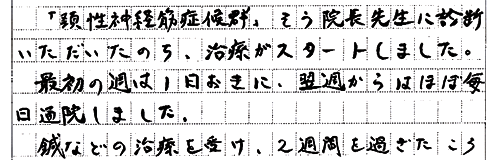 「頸性神経筋症候群」そう院長先生に診断
いただいたのち、治療がスタートしました。
最初の週は1日おきに、翌週からはほぼ毎
日通院しました。
鍼などの治療を受け、2週間を過ぎたころ